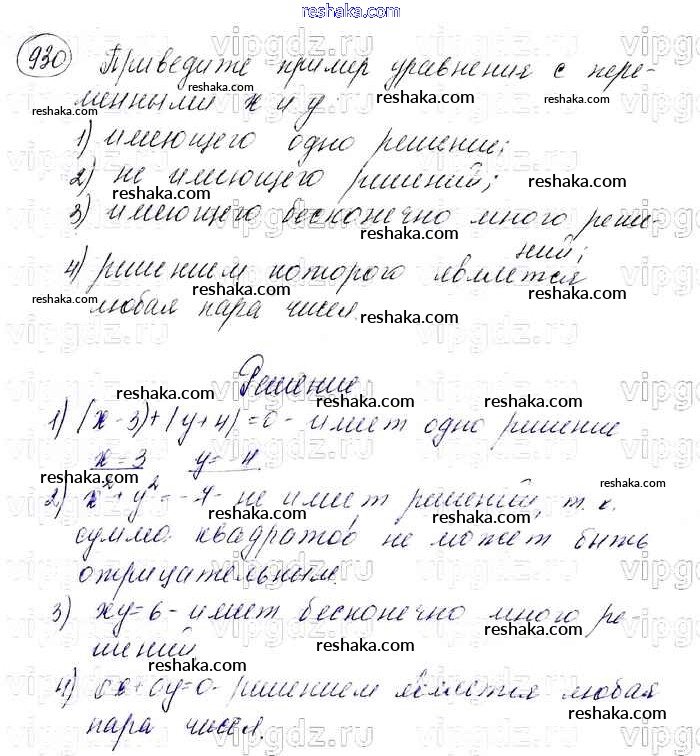 930 Приведите пример уравнения с пере-
менными x и y
1) имеющего одно решение;
2) не имеющего решений;
3) имеющего бесконечно много реше-
ний;
4) решением которого является
любая пара чисел.
Решение
1) |x-3|+|y+4|=0 - имеет одно решение
x=3 y=-4
2) x²+y²=-4- не имеет решений, т.к.
сумма квадратов не может быть
отрицательным.
3) xy=6 - имеет бесконечно много ре-
шений
4) 0x+0y=0- решением является любая
пара чисел.